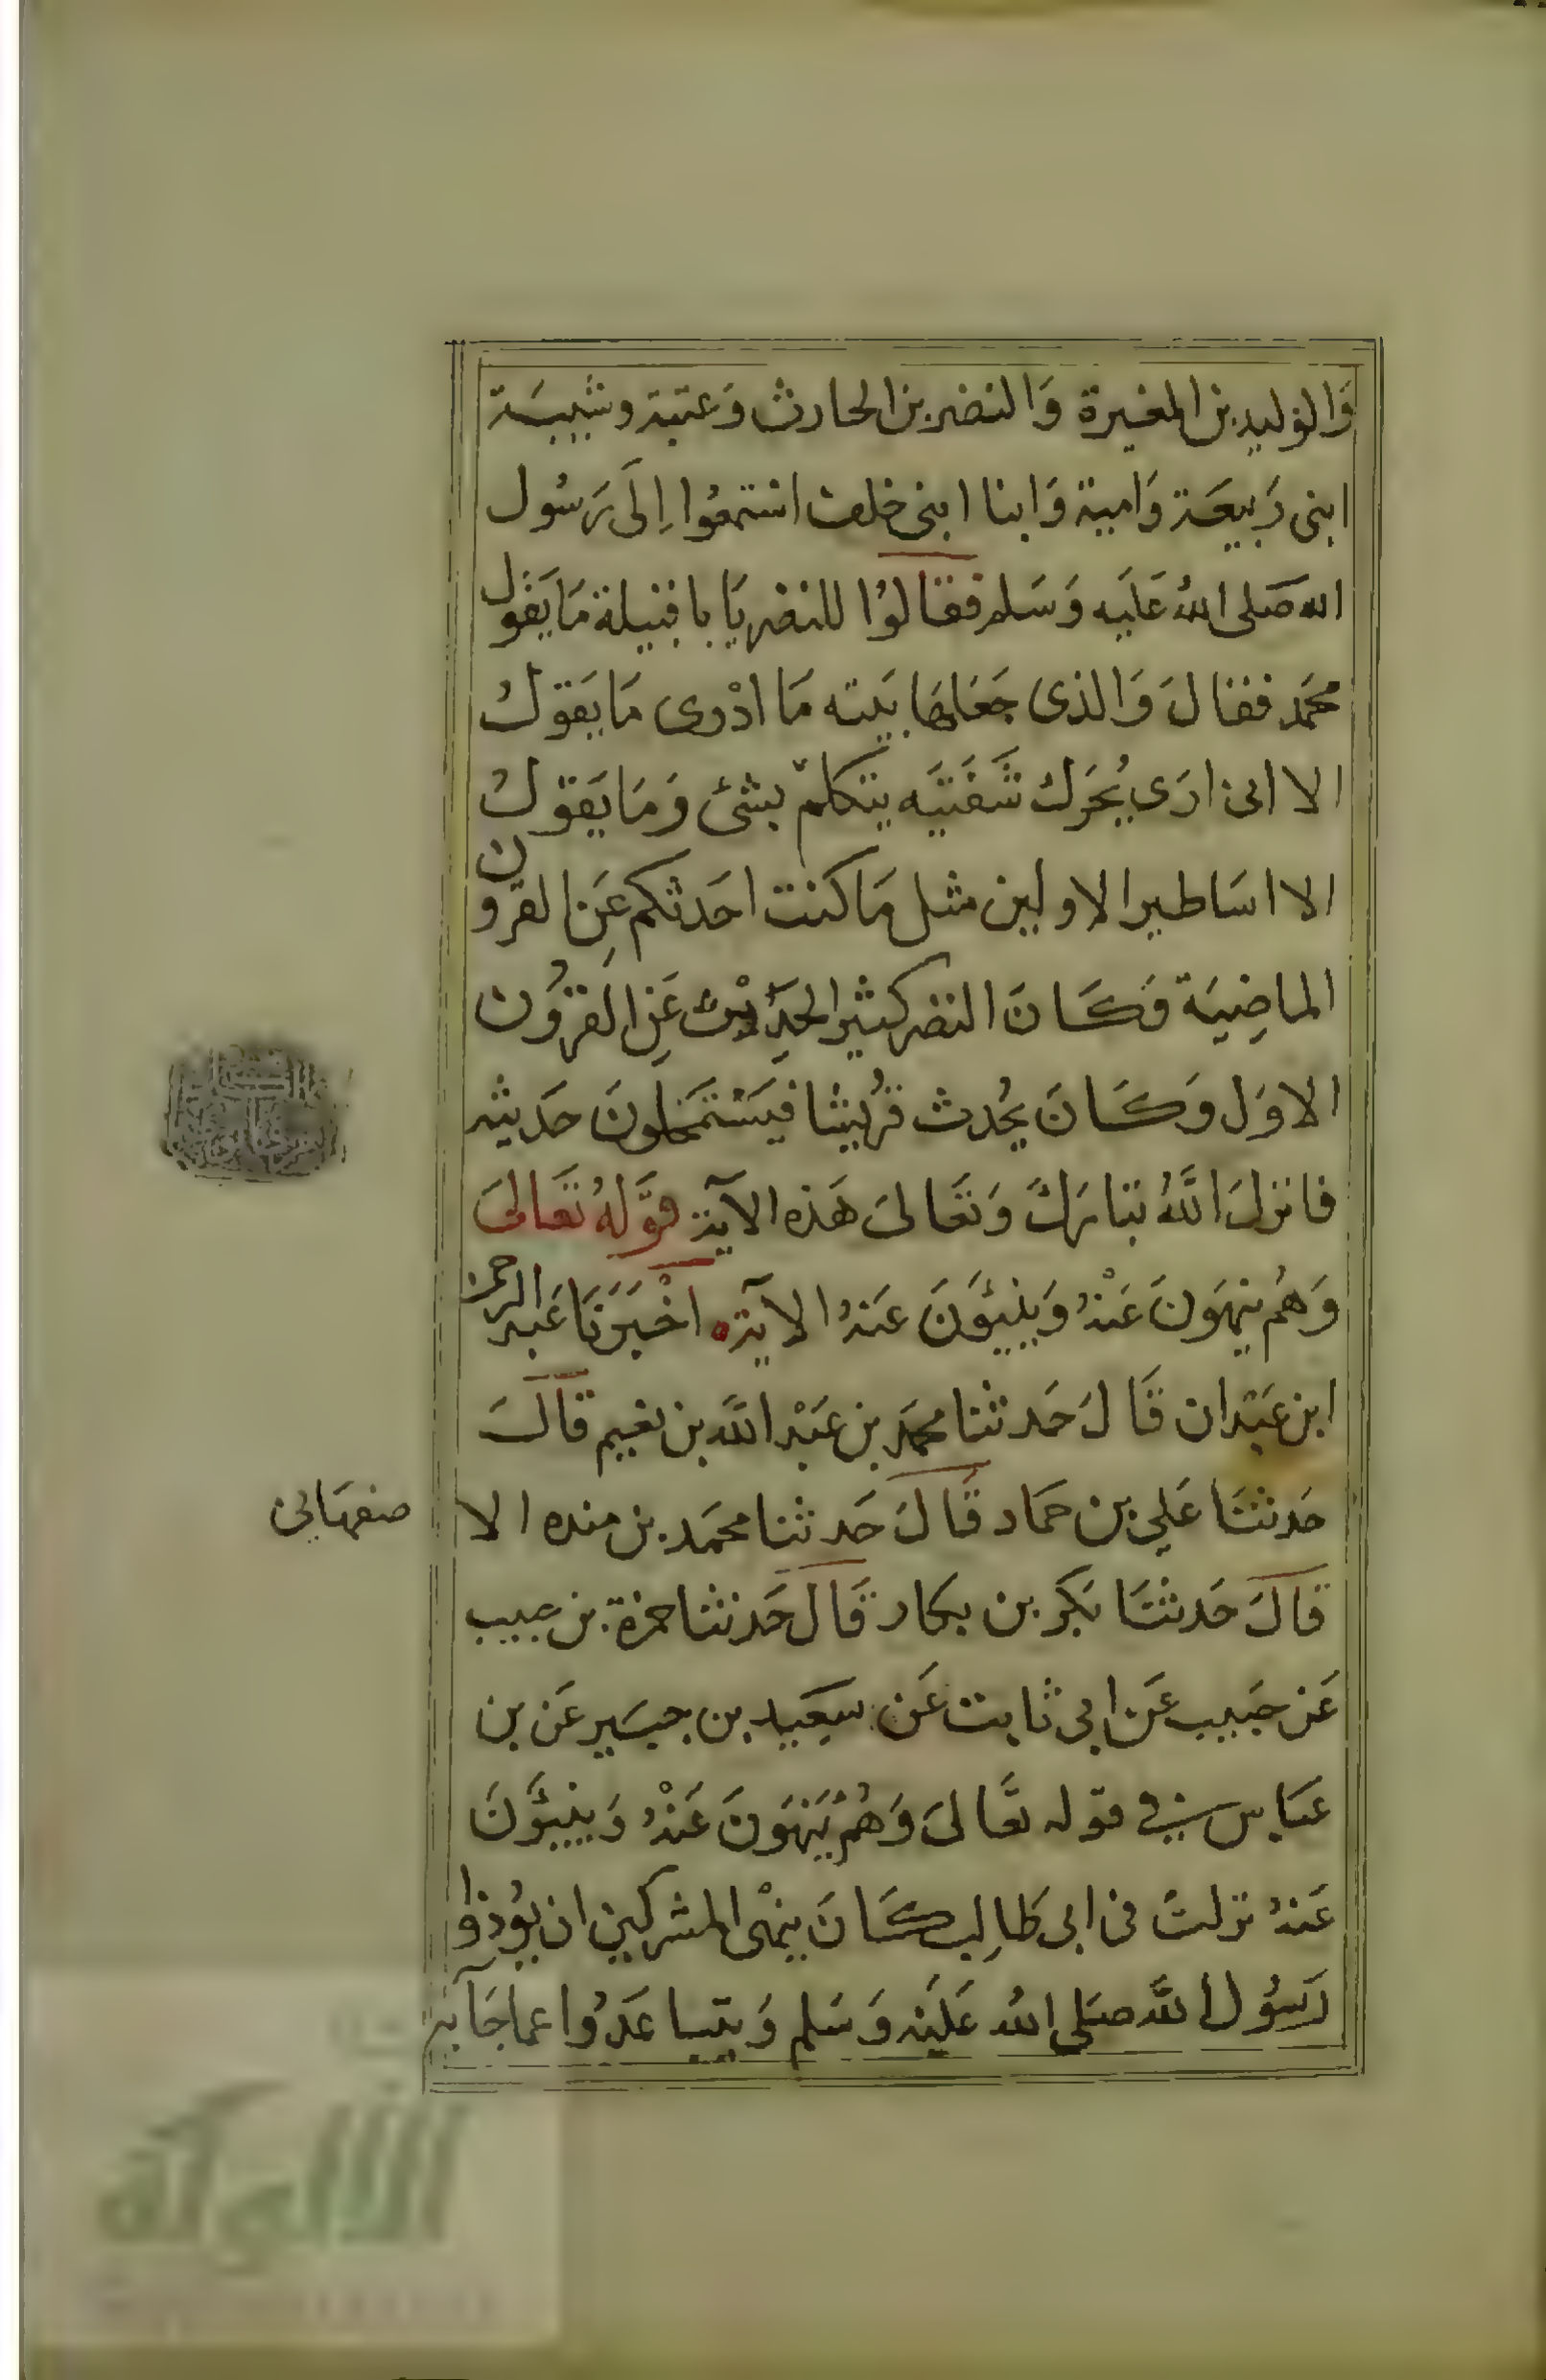 وَالوليد بن المغيرة وَالنضر بن الحارث وَعتبة وشيبَة
ابنى رَبيعَة وَامية وَابنا ابنى خلف استمعُوا اِلَى رَسُول
الله صَلى اللهُ عَليَه وَسَلم فقالوُا للنضر يَا با قتيلة مَا يَقول
محَمد فقالَ وَالذى جَعَلهَا بَيته مَا ادْرى مَا يَقولُ
الا انى ارَى يُحَرك شَفَتيَه يتكلمّ بشئ وَمَا يَقولُ
الا اسَاطير الاولين مثل مَا كنت احَدثكم عَنِ القرون
الماضِيَة وَكَانَ النضر كثير الحَدِيْث عَنِ القرُون
الاوَل وَكَانَ يحُدث قرُيشا فيَسْتَملحونَ حَديثه
فانزلَ اللَّهُ تبَارَكَ وَتعَالىَ هَذه الآية قوَّلهُ تعَالىَ
وَهُم ينهَونَ عَنْهُ وَينئوَنَ عَنهُ الآية اخْبَرَنَا عَبد الرحمن
ابن عَبْدان قَالَ حَدثنا محمَد بن عَبْد اللَّه بن نعيم قالَ
حَدثنَا عَلي بن حمَاد قَالَ حَدثنا محمَد بن منده الا
صفهَانى
قالَ حَدثنَا بَكَر بن بكار قَالَ حَدثنا حمزة بن حبيب
عَن حبَيب عَن ابى ثابت عَن سعَيِد بن جبَير عَن بن
عبَاس فى قوله تعَّالىَ وَهُمْ يَنهَونَ عَنْهُ وَينئوَّنَ
عَنهُ نزلتْ فى ابى طَالِب كَانَ ينهْى المشركين ان يؤُذوا
رَسُول اللَّه صَلى اللهُ عَليَه وَسَلم وَيتبَاعَدُوا عما جَآء به
الألوكة